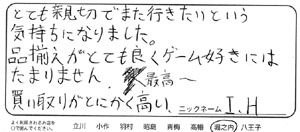 とても親切でまた行きたいという
気持ちになりました。
品揃えがとても良くゲーム好きには
たまりません 最高〜
買い取りがとにかく高い。 ニックネーム I.H
よく利用されるお店を
○で囲んでください。 立川 小作 羽村 昭島 青梅 高幡 堀之内 八王子